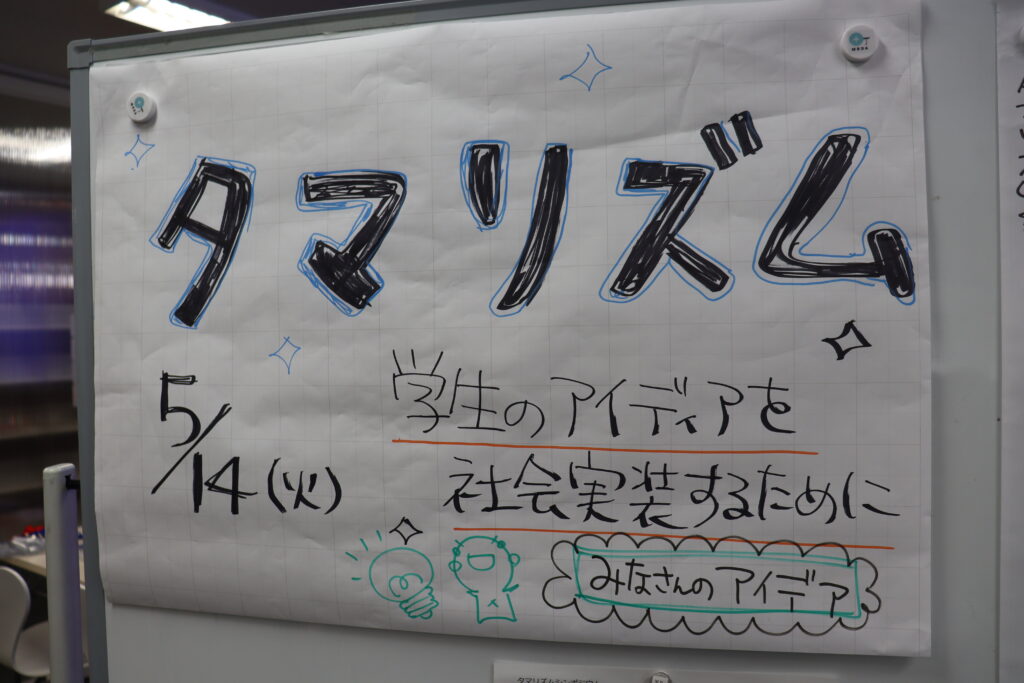 タマリズム
5/14(火)
学生のアイディアを
社会実装するために
みなさんのアイデア
タマリズムシンポジウム